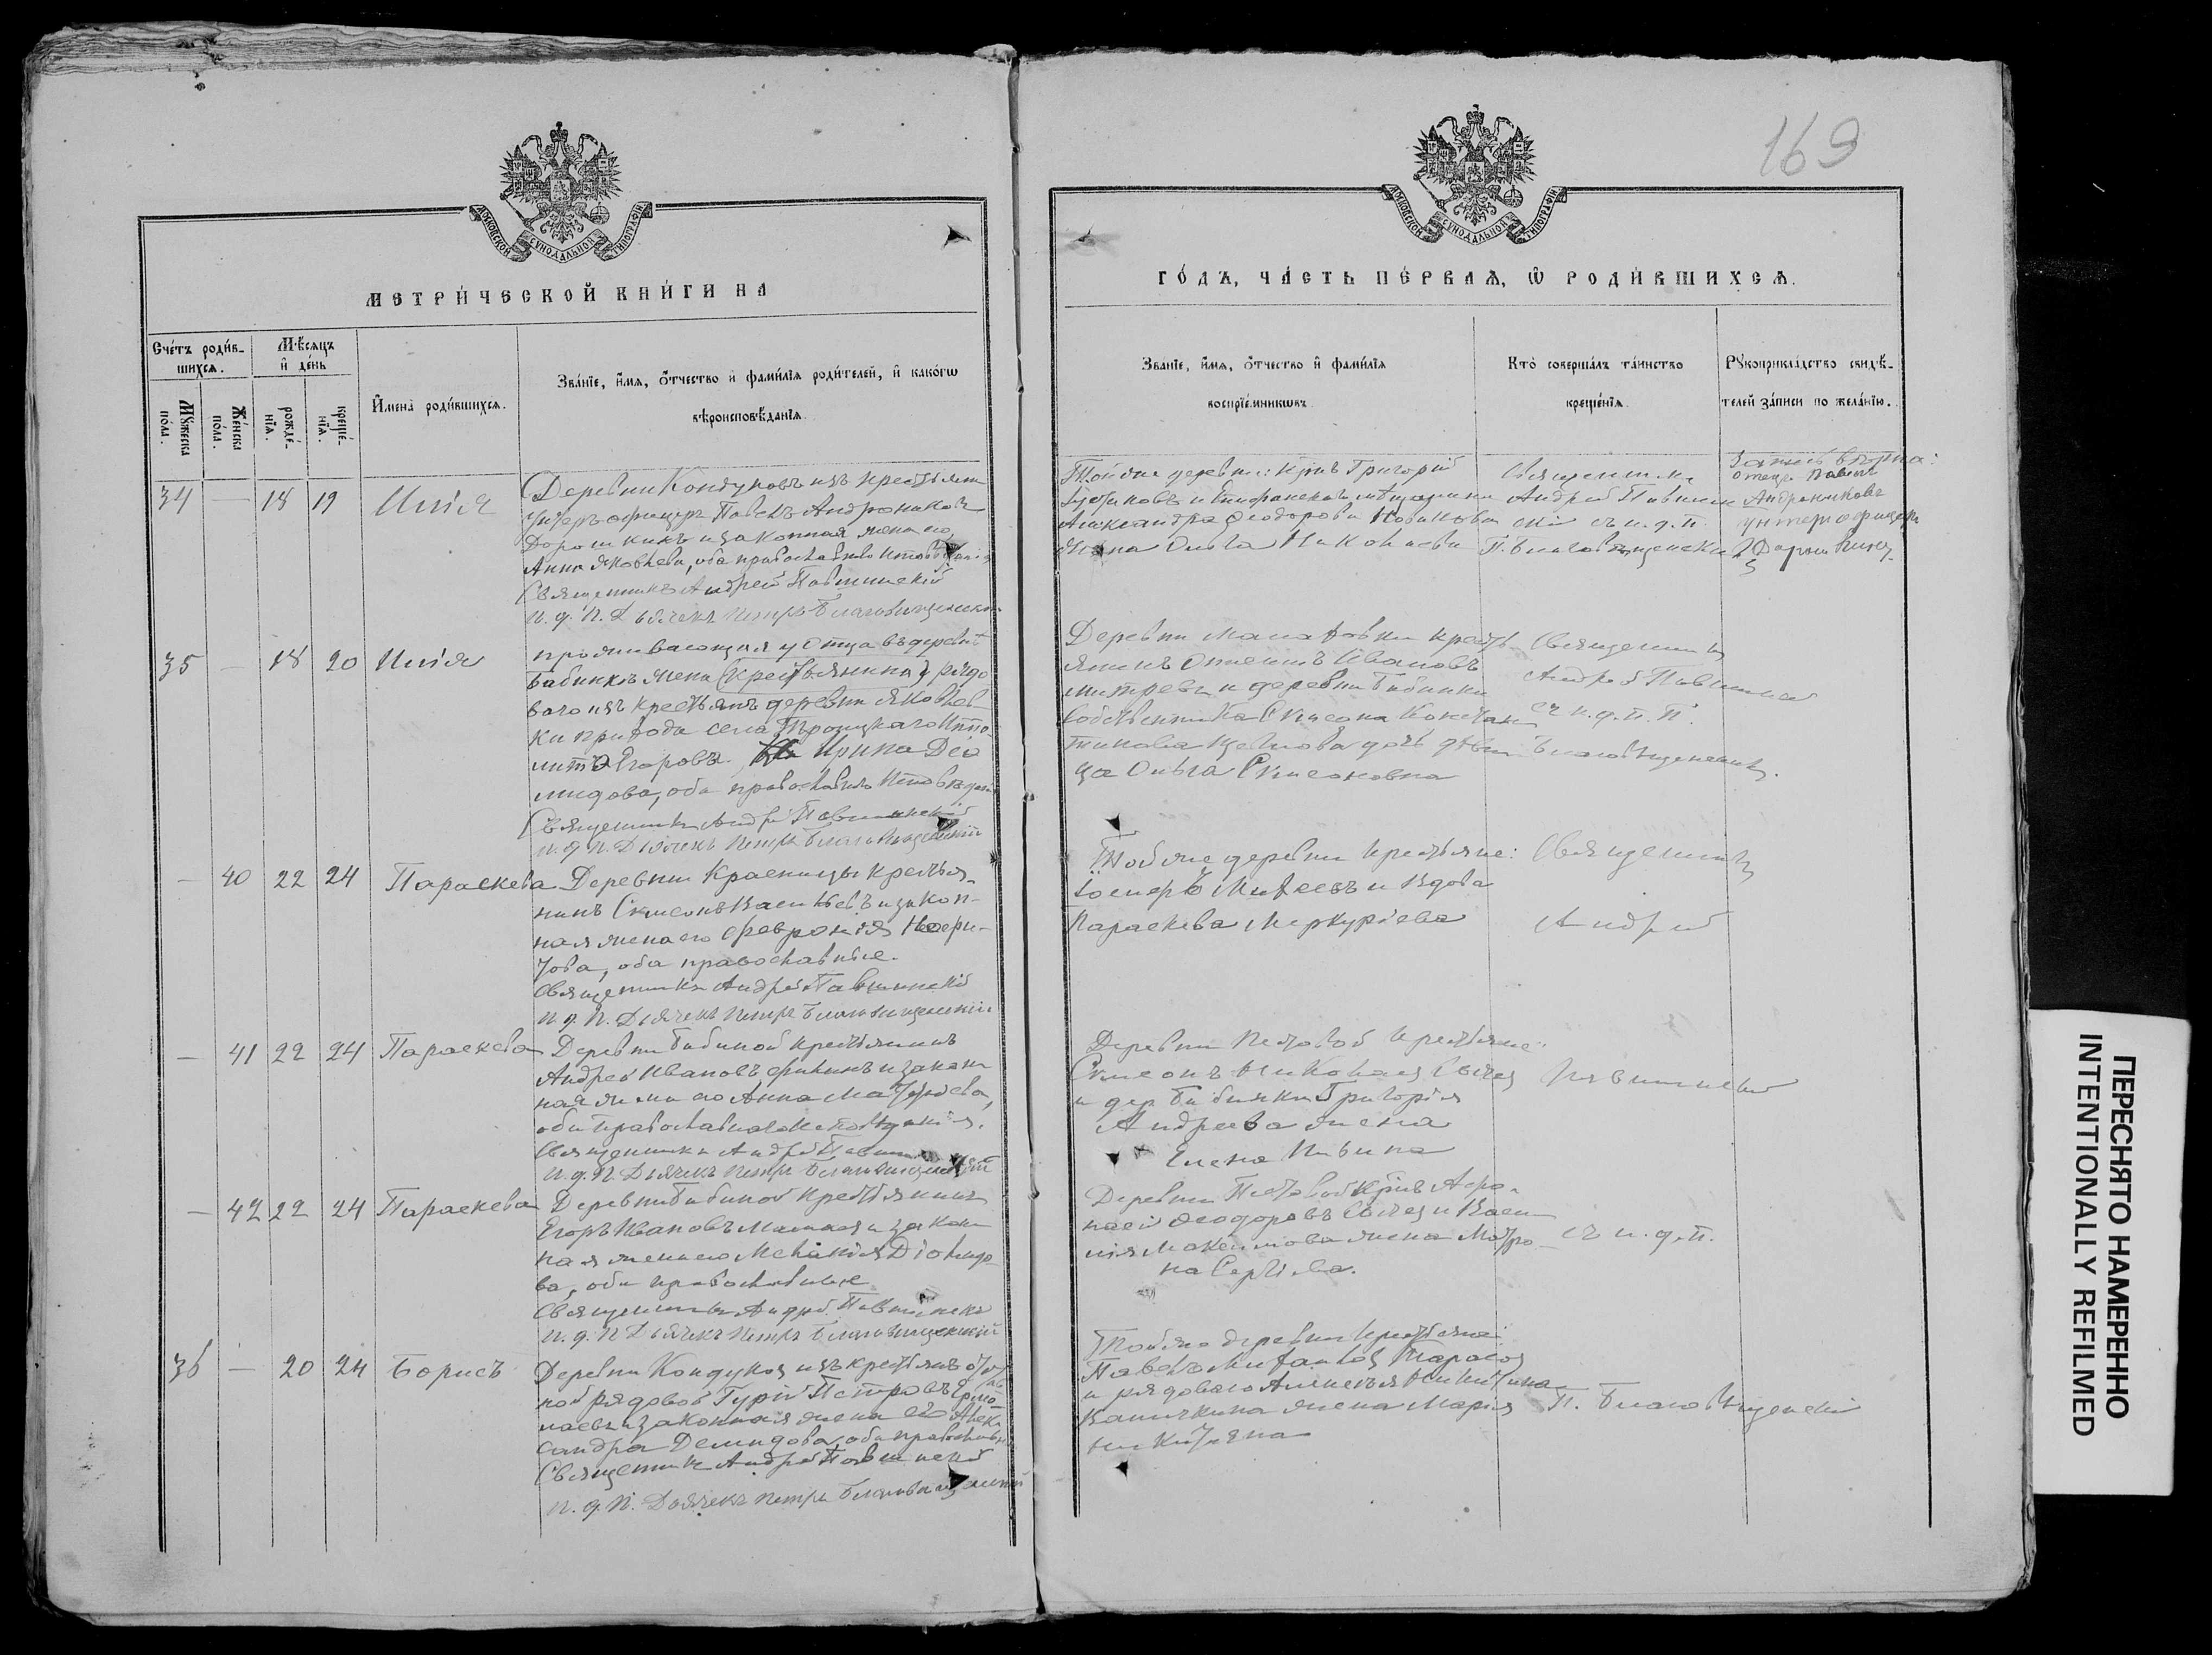 169
МОСКОВСКОЙ СѴНОДАЛЬНОЙ ТИПОГРАФІИ
МЕТРИ́ЧЕСКОЙ КНИ́ГИ НА
Сче́тъ роди́в-
шихсѧ.
Мѣ́сѧцъ
и҆ де́нь
Мꙋ́жеска
по́ла.
Же́нска
по́ла.
рожде́-
нїѧ.
креще́-
нїѧ.
И҆мена̀ роди́вшихсѧ.
Зва́нїе, и҆́мѧ, ѻ҆́тчество и҆ фами́лїѧ роди́телей, и҆ како́гѡ
вѣроисповѣ́данїѧ.
34 — 18 19 Илія
Деревни Кондуковъ изъ крестьянъ
унтеръ офицеръ Павелъ Андрониковъ
Дорошкинъ и законная жена его
Анна Яковлева, оба православнаго исповѣданія
Священникъ Андрей Павшинскій
и. д. П. Дьячекъ Петръ Благовѣщенскій
35 — 18 20 Илія
проживающая у отца въ деревнѣ
Бабинкѣ жена (крестьянина) рядо
ваго изъ крестьянъ деревни Яковлев
ки прихода села Троицкаго Иппо
лита Егорова Ирина Дио
мидова, оба православнаго исповѣданія
Священникъ Андрей Павшинскій
и. д. П. Дьячекъ Петръ Благовѣщенскій
— 40 22 24 Параскева
Деревни Красницы крестья-
нинъ Симеонъ Васильевъ и закон-
ная жена его Феврония
това, оба православные.
Священникъ Андрей Павшинскій
и. д. П. Дьячекъ Петръ Благовѣщенскій
— 41 22 24 Параскева
Деревни Бабиной крестьянинъ
Андрей Ивановъ и закон
ная жена его Анна Матѳіева,
оба православнаго исповѣданія.
Священникъ Андрей Павшинскій
и. д. П. Дьячекъ Петръ Благовѣщенскій
— 42 22 24 Параскева
Деревни Бабиной крестьянинъ
Егоръ Ивановъ и закон
ная жена его Меланія
ва, оба православные
Священникъ Андрей Павшинскій
и. д. П. Дьячекъ Петръ Благовѣщенскій
36 — 20 24 Борисъ
Деревни Кондуков изъ крестьянъ
ной рядовой Гурій Петровъ Ермо-
лаевъ и законная жена его Алек
сандра Демидова, оба православн
Священникъ Андрей Павшинскій
и. д. П. Дьячекъ Петръ Благовѣщенскій
МОСКОВСКОЙ СѴНОДАЛЬНОЙ ТИПОГРАФІИ
ГО́ДЪ, ЧА́СТЬ ПЕ́РВАѦ, Ѽ РОДИ́ВШИХСѦ.
Зва́нїе, и҆́мѧ, ѻ҆́тчество и҆ фами́лїѧ
воспрїе́мникѡвъ.
Кто̀ соверша́лъ та́инство
креще́нїѧ.
Рꙋкоприкла́дство свидѣ́-
телей за́писи по жела́нїю.
Той же деревни: крнъ Григорій
и Епифанскаго мѣщанина
Александра Ѳеодорова Новикова
жена Ольга Николаева
Священникъ
Андрей Павшин
скій съ и. д. п.
П. Благовѣщенским
Запись вѣрна:
отецъ Павелъ
Андрониковъ
унтеръ офицеръ
Дорошкинъ
Деревни Малаховки кресть-
янинъ Ивановъ
Митревъ и деревни Бабинки
собственника Симеона Констан
тинова дочь дѣви
ца Ольга Симеоновна
Священникъ
Андрей Павшинск
съ и. д. п. П.
Благовѣщенским.
Той же деревни крестьяне:
Михеевъ и вдова
Параскева Меркуріева
Священникъ
Андрей
Деревни Пестовой крестьяне:
Симеонъ Николаев Сычев
и дер. Бабинки Григорія
Андреева жена
Елена Ильина
Павшинскій
Деревни Пестовой крнъ Аѳа-
насій Ѳеодоровъ Сычев и Васи
лія Максимова жена Матро-
на Сергіева.
съ и. д. п.
Той же деревни крестьяне:
Павелъ Михаилов Тарасов
и рядоваго Алексѣя Никитина
жена Марія
Никитина
П. Благовѣщенскій
ПЕРЕСНЯТО НАМЕРЕННО
INTENTIONALLY REFILMED